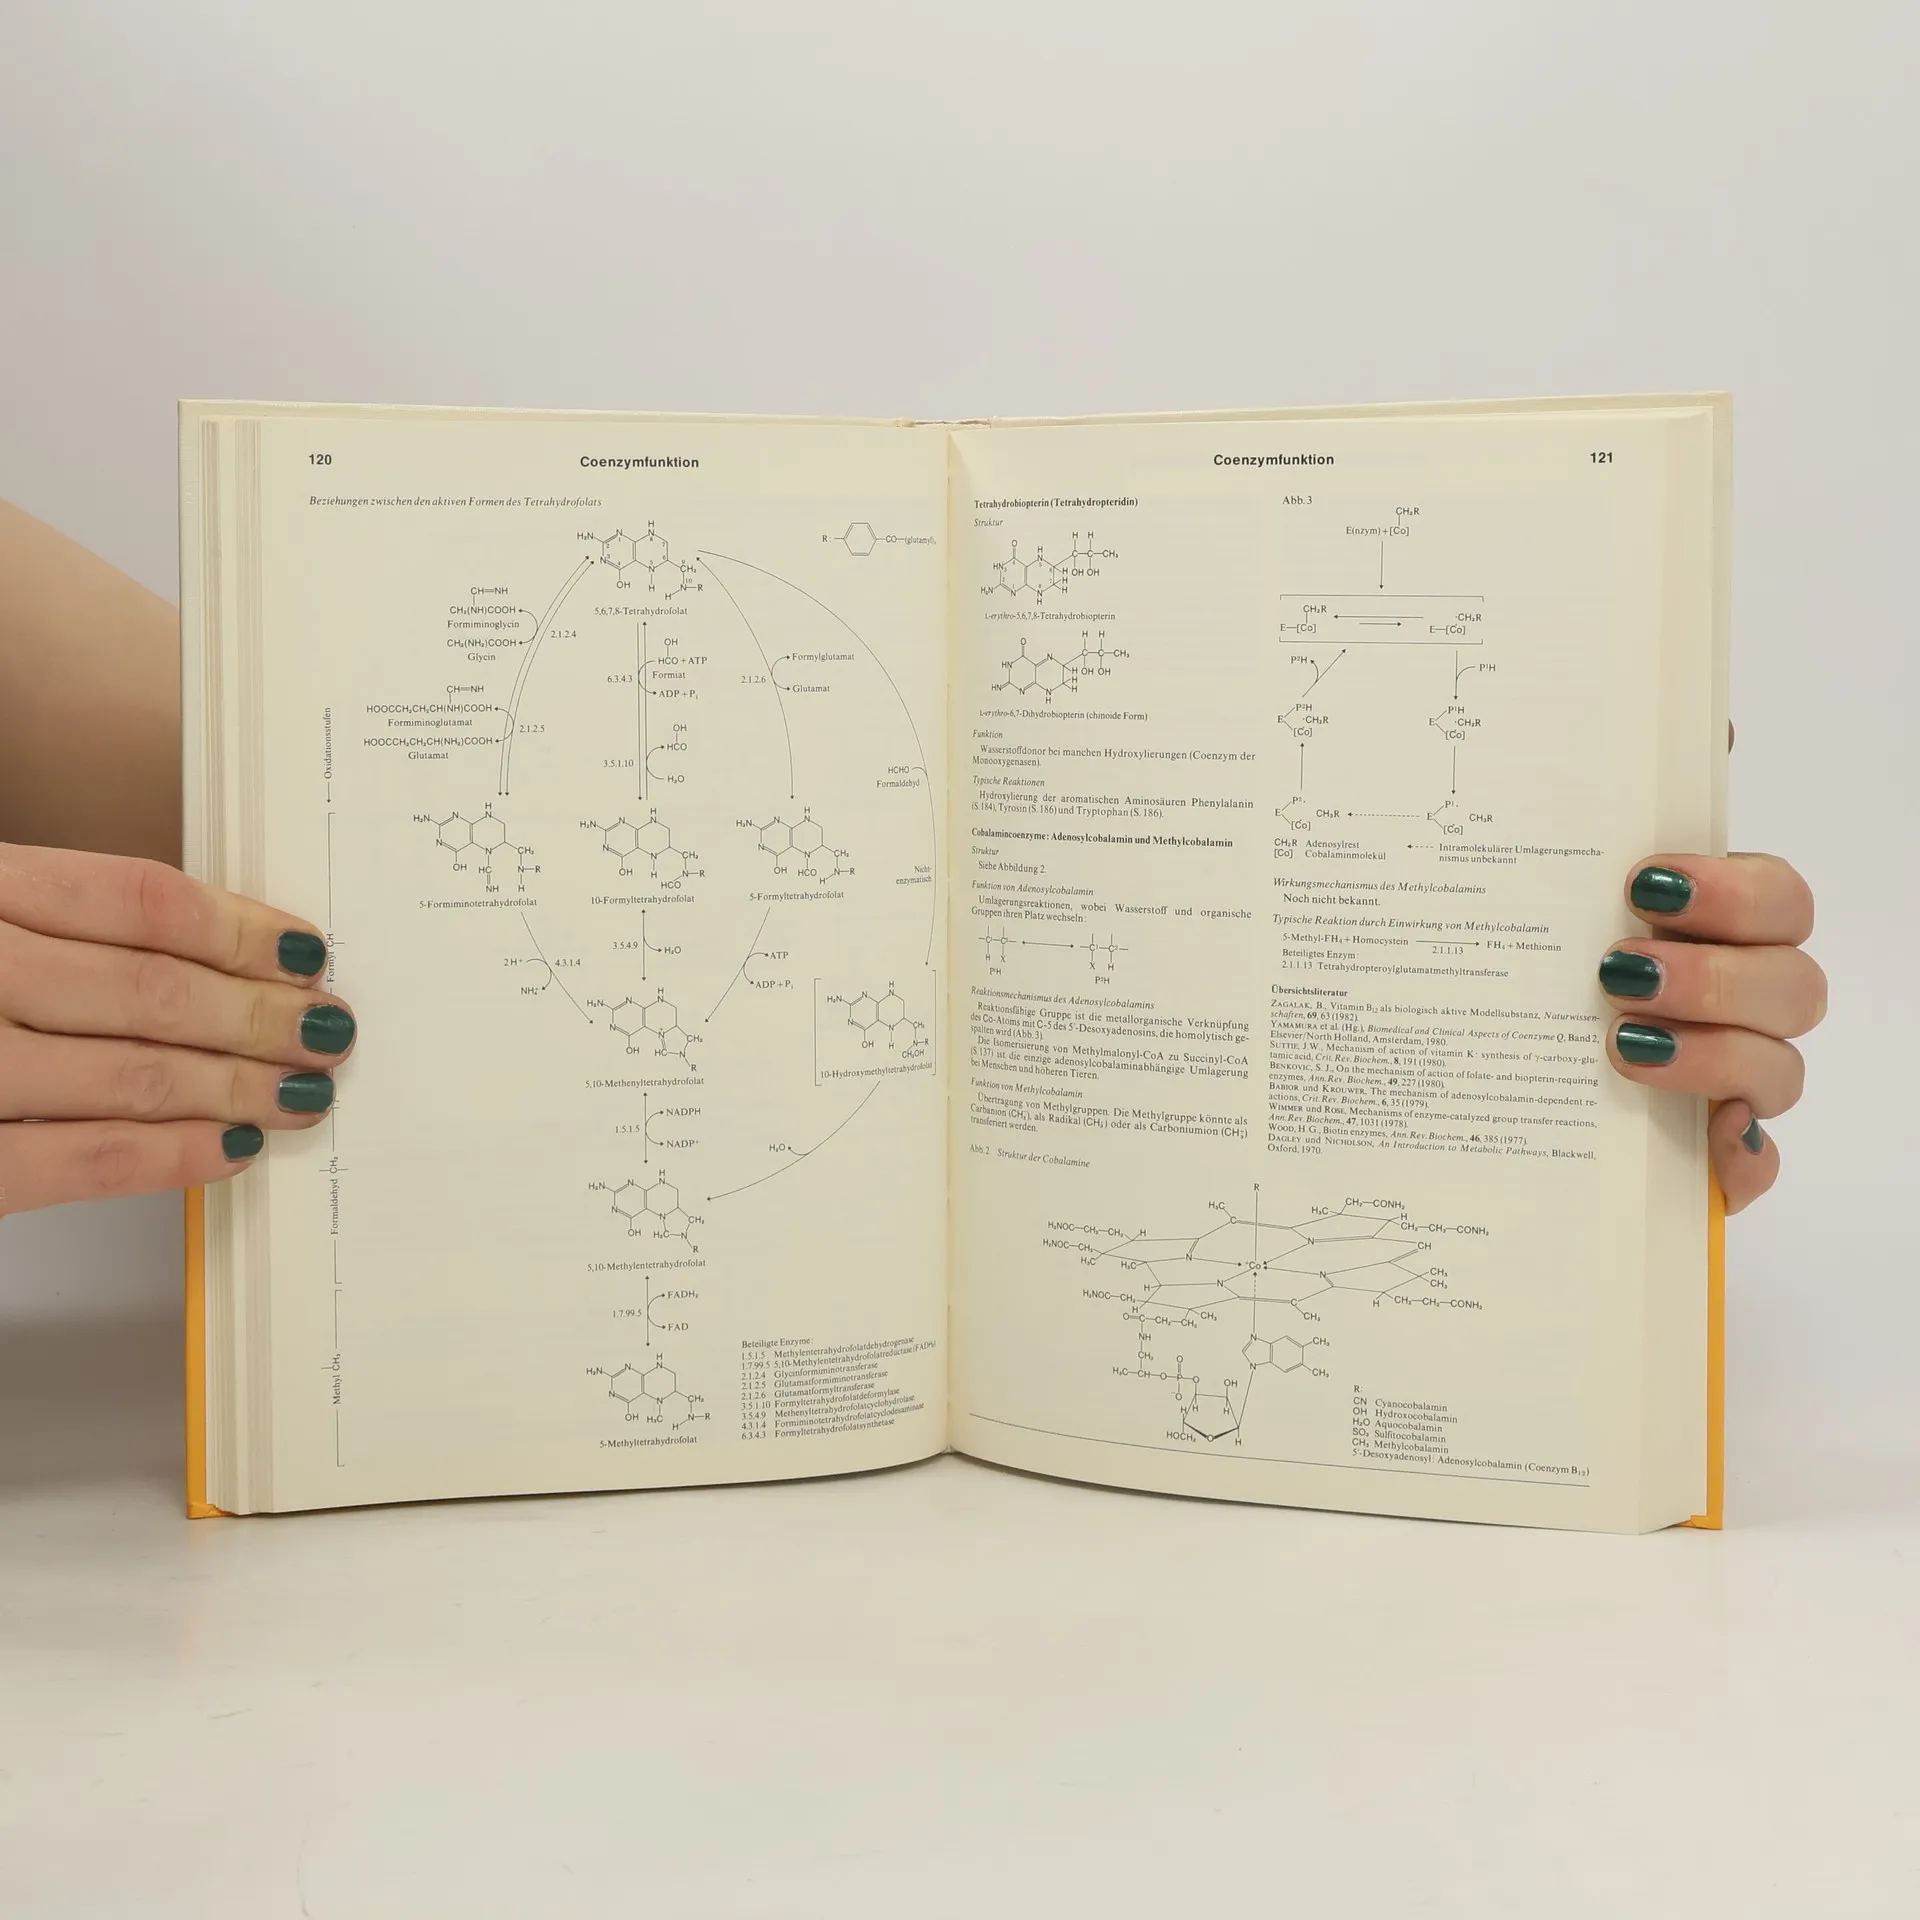 120
Coenzymfunktion
Beziehungen zwischen den aktiven Formen des Tetrahydrofolats
R:
CO—(glutamyl)ₙ
5,6,7,8-Tetrahydrofolat
CH=NH
CH₂(NH)COOH
Formiminoglycin
CH₂(NH₂)COOH
Glycin
2.1.2.4
CH=NH
HOOCCH₂CH₂CH(NH)COOH
Formiminoglutamat
HOOCCH₂CH₂CH(NH₂)COOH
Glutamat
2.1.2.5
OH
HCO + ATP
Formiat
6.3.4.3
ADP + Pᵢ
OH
HCO
3.5.1.10
H₂O
Formylglutamat
2.1.2.6
Glutamat
HCHO
Formaldehyd
Nicht-
enzymatisch
Oxidationsstufen
5-Formiminotetrahydrofolat
10-Formyltetrahydrofolat
5-Formyltetrahydrofolat
2H⁺
4.3.1.4
NH₄⁺
3.5.4.9
H₂O
ATP
ADP + Pᵢ
Formyl CH
5,10-Methenyltetrahydrofolat
10-Hydroxymethyltetrahydrofolat
NADPH
1.5.1.5
NADP⁺
H₂O
Formaldehyd CH₂
5,10-Methylentetrahydrofolat
FADH₂
1.7.99.5
FAD
Methyl CH₃
5-Methyltetrahydrofolat
Beteiligte Enzyme:
1.5.1.5 Methylentetrahydrofolatdehydrogenase
1.7.99.5 5,10-Methylentetrahydrofolatreductase (FADH₂)
2.1.2.4 Glycinformiminotransferase
2.1.2.5 Glutamatformiminotransferase
2.1.2.6 Glutamatformyltransferase
3.5.1.10 Formyltetrahydrofolatdeformylase
3.5.4.9 Methenyltetrahydrofolatcyclohydrolase
4.3.1.4 Formiminotetrahydrofolatcyclodesaminase
6.3.4.3 Formyltetrahydrofolatsynthetase
Coenzymfunktion
121
Tetrahydrobiopterin (Tetrahydropteridin)
Struktur
L-erythro-5,6,7,8-Tetrahydrobiopterin
L-erythro-6,7-Dihydrobiopterin (chinoide Form)
Funktion
Wasserstoffdonor bei manchen Hydroxylierungen (Coenzym der
Monooxygenasen).
Typische Reaktionen
Hydroxylierung der aromatischen Aminosäuren Phenylalanin
(S. 184), Tyrosin (S. 186) und Tryptophan (S. 186).
Cobalamincoenzyme: Adenosylcobalamin und Methylcobalamin
Struktur
Siehe Abbildung 2.
Funktion von Adenosylcobalamin
Umlagerungsreaktionen, wobei Wasserstoff und organische
Gruppen ihren Platz wechseln:
P¹H
P²H
Reaktionsmechanismus des Adenosylcobalamins
Reaktionsfähige Gruppe ist die metallorganische Verknüpfung
des Co-Atoms mit C-5 des 5'-Desoxyadenosins, die homolytisch ge-
spalten wird (Abb. 3).
Die Isomerisierung von Methylmalonyl-CoA zu Succinyl-CoA
(S. 137) ist die einzige adenosylcobalaminabhängige Umlagerung
bei Menschen und höheren Tieren.
Funktion von Methylcobalamin
Übertragung von Methylgruppen. Die Methylgruppe könnte als
Carbanion (CH₃⁻), als Radikal (CH₃·) oder als Carboniumion (CH₃⁺)
transferiert werden.
Abb. 2 Struktur der Cobalamine
Abb. 3
CH₂R
E(nzym) + [Co]
CH₂R
E—[Co]
·CH₂R
E—[Co]
P²H
P¹H
P²H
E ·CH₂R
[Co]
P¹H
E ·CH₂R
[Co]
P²·
E CH₂R
[Co]
P¹·
E CH₂R
[Co]
CH₂R Adenosylrest
[Co] Cobalaminmolekül
Intramolekulärer Umlagerungsmecha-
nismus unbekannt
Wirkungsmechanismus des Methylcobalamins
Noch nicht bekannt.
Typische Reaktion durch Einwirkung von Methylcobalamin
5-Methyl-FH₄ + Homocystein 2.1.1.13 FH₄ + Methionin
Beteiligtes Enzym:
2.1.1.13 Tetrahydropteroylglutamatmethyltransferase
Übersichtsliteratur
ZAGALAK, B., Vitamin B₁₂ als biologisch aktive Modellsubstanz, Naturwissen-
schaften, 69, 63 (1982).
YAMAMURA et al. (Hg.), Biomedical and Clinical Aspects of Coenzyme Q, Band 2,
Elsevier/North Holland, Amsterdam, 1980.
SUTTIE, J.W., Mechanism of action of vitamin K: synthesis of γ-carboxy-glu-
tamic acid, Crit. Rev. Biochem., 8, 191 (1980).
BENKOVIC, S. J., On the mechanism of action of folate- and biopterin-requiring
enzymes, Ann. Rev. Biochem., 49, 227 (1980).
BABIOR und KROUWER, The mechanism of adenosylcobalamin-dependent re-
actions, Crit. Rev. Biochem., 6, 35 (1979).
WIMMER und ROSE, Mechanisms of enzyme-catalyzed group transfer reactions,
Ann. Rev. Biochem., 47, 1031 (1978).
WOOD, H.G., Biotin enzymes, Ann. Rev. Biochem., 46, 385 (1977).
DAGLEY und NICHOLSON, An Introduction to Metabolic Pathways, Blackwell,
Oxford, 1970.
R:
CN Cyanocobalamin
OH Hydroxocobalamin
H₂O Aquocobalamin
SO₃ Sulfitocobalamin
CH₃ Methylcobalamin
5'-Desoxyadenosyl: Adenosylcobalamin (Coenzym B₁₂)